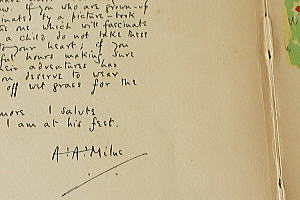 ow. If you who are grown-up
inated by a picture-book
is one which will fascinate
a child do not take these
to your heart; if you
ful hours making sure
eir adventures has
ou deserve to wear
off wet grass for the
more I salute
I am at his feet.
A. A. Milne